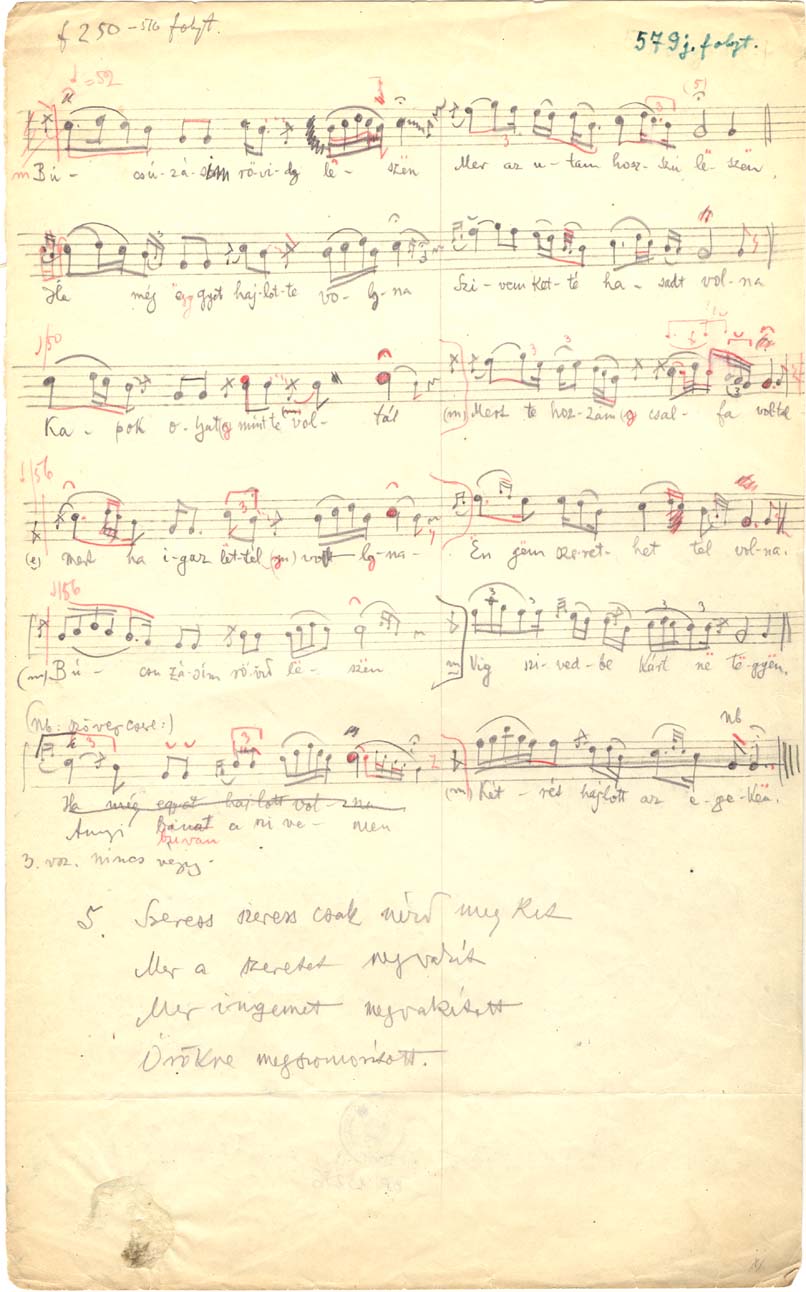 f 250 – 516 folyt.
579j. folyt.
♩ = 52
(5)
3 3
m Bú - csú - zá - sim rö - vi - dg lë - szën Mer az u - tam hosz - szu lë - szën
Ha még ëgy gyët haj - lot - te vo - lg - na Szi - vem ket - té ha - sadt vol - na
♩/50
3 3
Ka - pok o - lyat g mint te vol - tál (m) Mert te hoz - zám g csal - fa voltál
♩/56
3
(g) mert ha i - gaz lët - tél (m) vo - lg - na - Ën gëm sze - ret - het tél vol - na.
♩/56
3 3
(m) Bú - csu zá - sim rö - vid lë - szën m Vig szi - ved - be kárt në të - gyën.
(nb: szövegcsere:)
3 3
nb
Ha még egyet hajlott vol - na (m) Két - rés hajlott az e - ge - këm.
Annyi Bánat a szi ve - men
3. vsz. nincs végig.
5. Szeress szeress csak nézd meg kit
Mer a szeretet megvakit
Mer ingemet megvakitott
Örökre megszomorított.